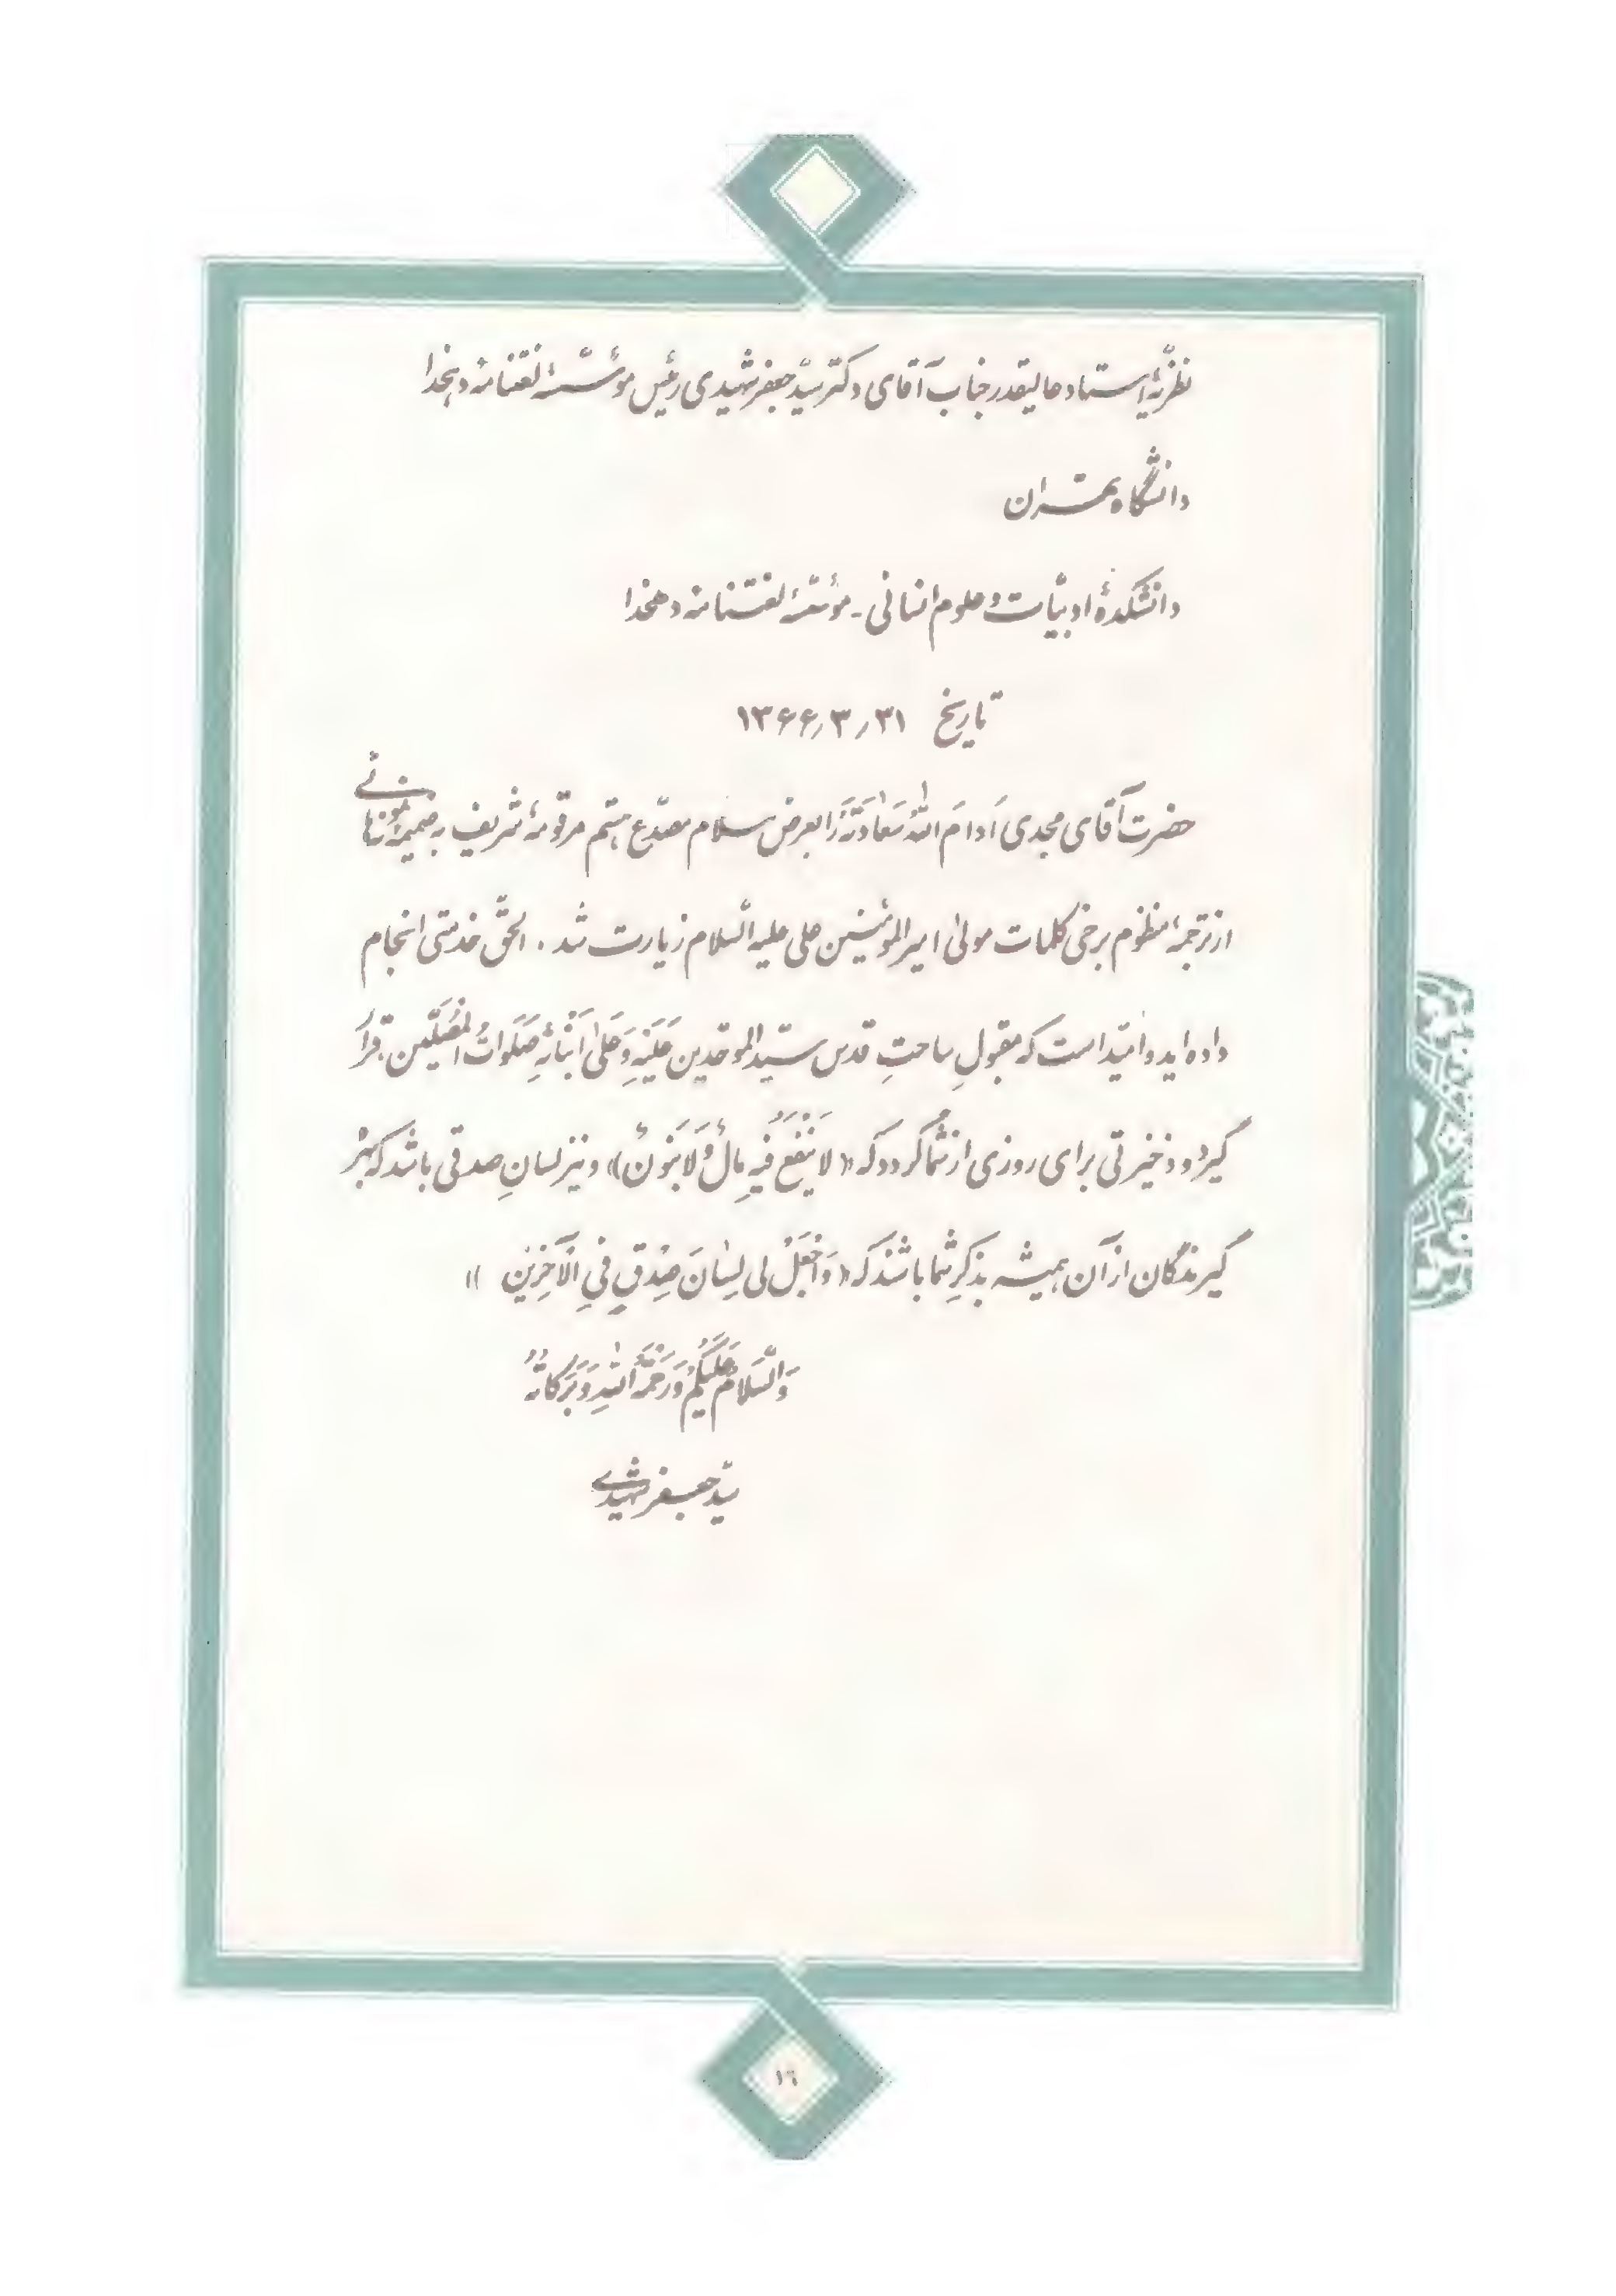 نظریّهٔ استاد عالیقدر جناب آقای دکتر سیّد جعفر شهیدی رئیس مؤسّسهٔ لغتنامهٔ دهخدا
دانشگاه تهران
دانشکدهٔ ادبیّات و علوم انسانی - مؤسّسهٔ لغتنامهٔ دهخدا
تاریخ ۱۳۶۶٫۳٫۳۱
حضرت آقای مجدی اَدامَ اللهُ سَعادَتَهُ را بعرض سلام مصدّع هستم مرقومهٔ شریف به ضمیمهٔ نمونه‌هائی
از ترجمهٔ منظوم برخی کلمات مولیٰ امیرالمؤمنین علی علیه السّلام زیارت شد. الحقّ خدمتی انجام
داده‌اید و امّید است که مقبولِ ساحتِ قدس سیّد الموحّدین عَلَیْهِ وَ عَلیٰ اَبْنائِهِ صَلَواتُ الْمُصَلّین قرار
گیرد و ذخیرتی برای روزی از شما گردد که «لا یَنْفَعُ فیهِ مالٌ وَ لا بَنُونٌ» و نیز لسانِ صدقی باشد که بهره
گیرندگان از آن همیشه بذکرِ شما باشند که «وَاجْعَلْ لی لِسانَ صِدْقٍ فِی الْآخِرینَ»
وَالسَّلامُ عَلَیْکُمْ وَرَحْمَةُ اللهِ وَبَرَکاتُهُ
سیّد جعفر شهیدی
١٦